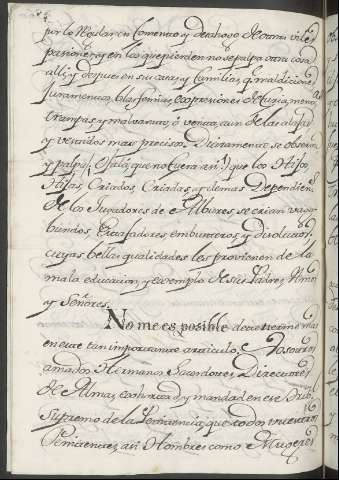 por lo Regular en Comercio y deshogo de otras viles
pasiones, y en los que pierden no se palpa otra cosa
alli, y despues en sus casas, y familias, q.e maldiciones
juramentos, blasfemias, expresiones de furia, menos
trampas, y malvaratos, ó ventas, aun de las alajas
y vestidos mas precisos. Diariamente se observa
y palpa (Ojalá, que no fuera asi!) que los Hijos,
Hijas, Criados, Criadas, y demas Dependien.s
de los Jugadores de Albures, se crian vaga
bundos, Estafadores, embusteros, y disolutos;
cuyas bellas qualidades les provienen de la
mala educacion, y exemplo de sus Padres, Amos
y Señores.
No me es posible decir mas
en este tan importante articulo. Vosotros
amados Hermanos Sacerdotes, Directores
de Almas, exhortad, y mandad en ese Trib.l
Supremo de la Penitencia, que todos vuestros
Penitentes, asi Hombres como Mugeres